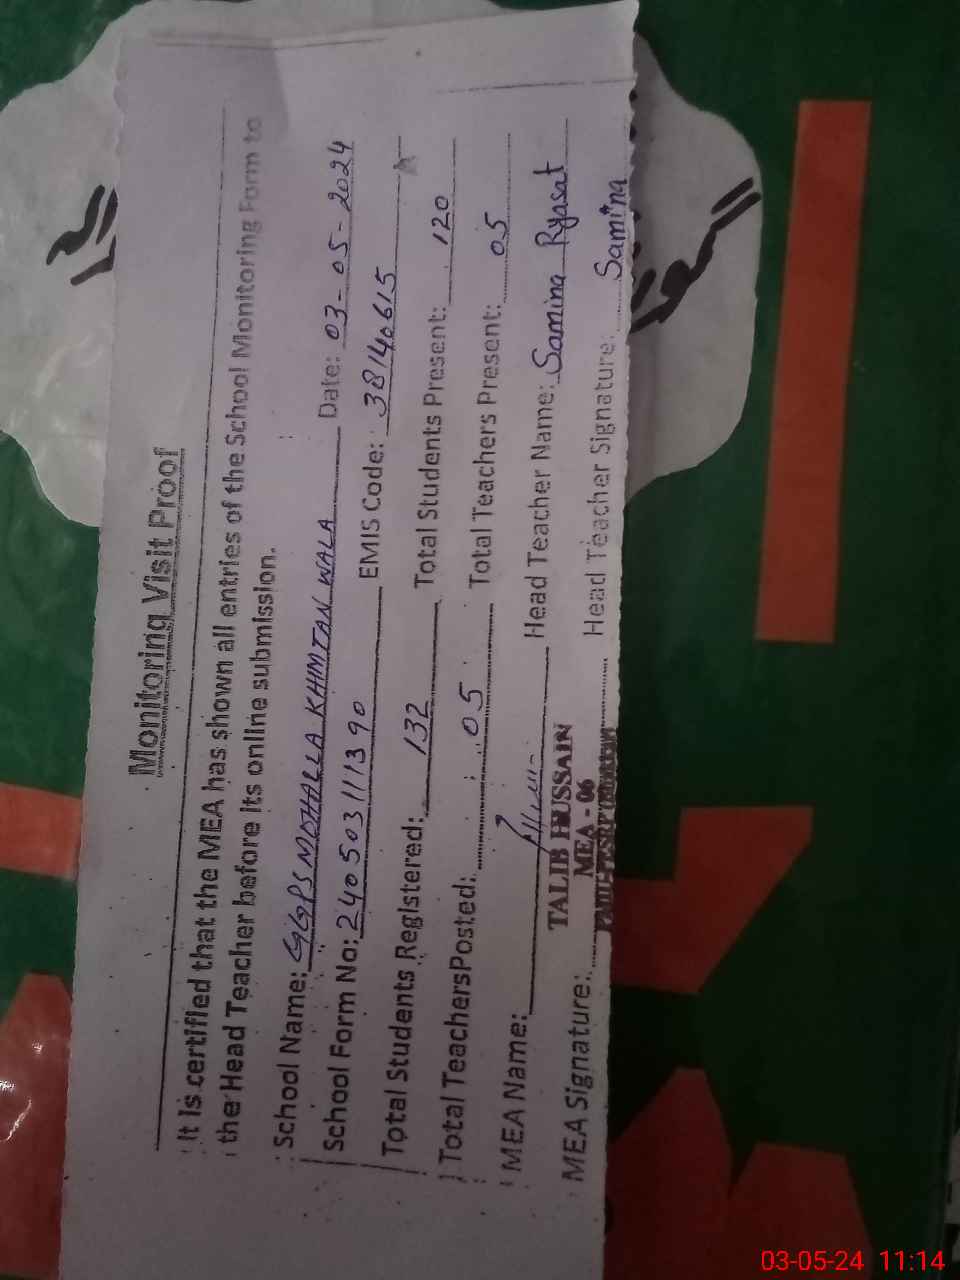 Monitoring Visit Proof
It is certified that the MEA has shown all entries of the School Monitoring Form to
the Head Teacher before its online submission.
School Name: GGPS MOHALLA KHIMTAN WALA Date: 03-05-2024
School Form No: 240503111390 EMIS Code: 38140615
Total Students Registered: 132 Total Students Present: 120
Total TeachersPosted: 05 Total Teachers Present: 05
MEA Name: Head Teacher Name: Samina Ryasat
TALIB HUSSAIN
MEA - 06
MEA Signature: Head Teacher Signature: Samina
03-05-24 11:14